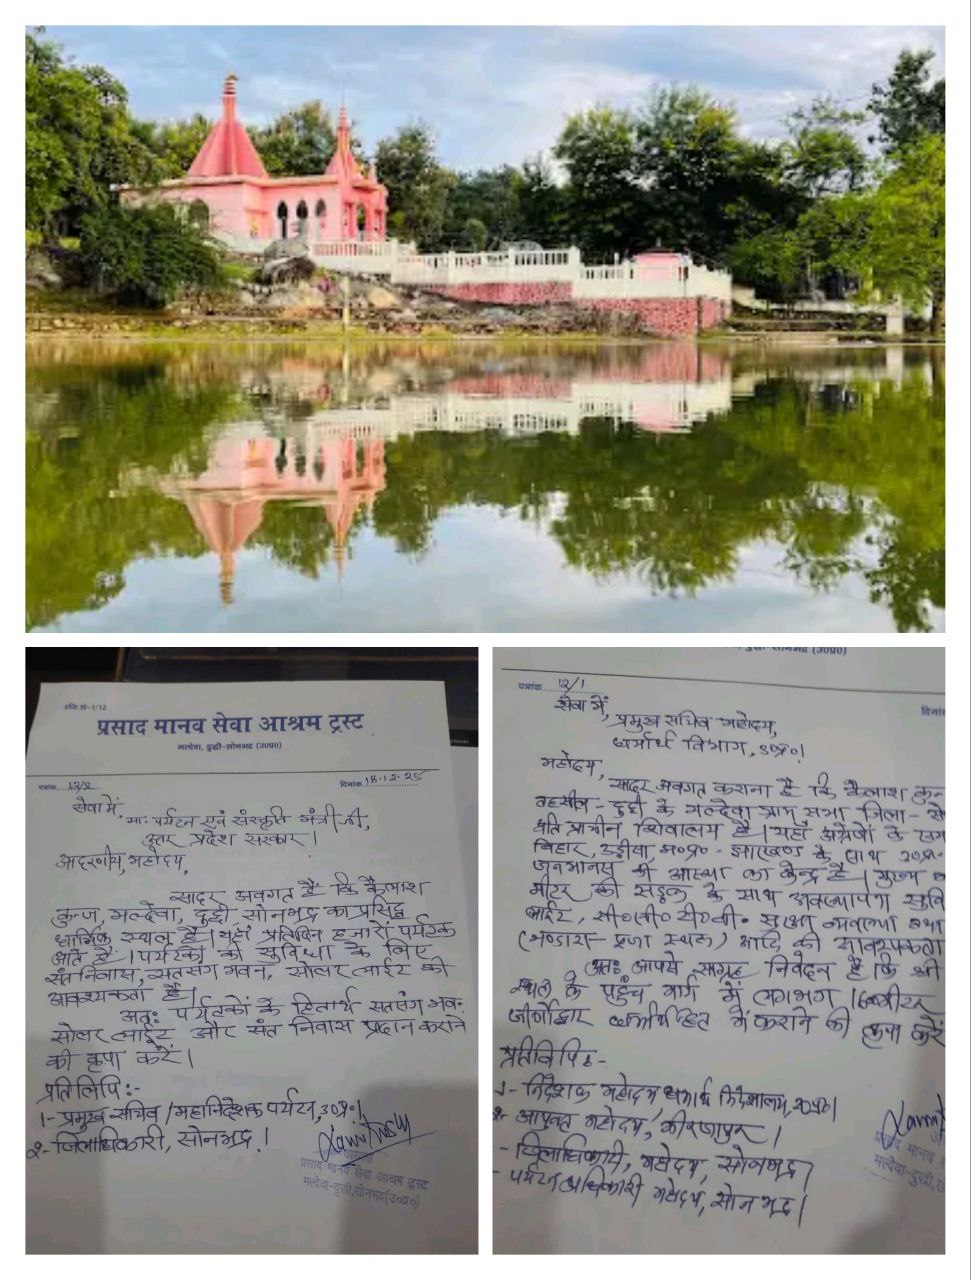 रजि.सं-1/12
प्रसाद मानव सेवा आश्रम ट्रस्ट
मल्देवा, दुद्धी-सोनभद्र (उ०प्र०)
पत्रांक 12/2
दिनांक 18.12.25
सेवा में,
मा. पर्यटन एवं संस्कृति मंत्री जी,
उत्तर प्रदेश सरकार।
आदरणीय, महोदय,
सादर अवगत है कि कैलाश
कुन्ज, मल्देवा, दुद्धी, सोनभद्र का प्रसिद्ध
धार्मिक स्थल है। यहाँ प्रतिदिन हजारों पर्यटक
आते हैं। पर्यटकों की सुविधा के लिए
संत निवास, सतसंग भवन, सोलर लाईट की
आवश्यकता है।
अतः पर्यटकों के हितार्थ सतसंग भवन
सोलर लाईट और संत निवास प्रदान कराने
की कृपा करें।
प्रतिलिपि:-
1- प्रमुख सचिव/महानिदेशक पर्यटन, उ०प्र०।
२- जिलाधिकारी, सोनभद्र।
प्रसाद मानव सेवा आश्रम ट्रस्ट
मल्देवा-दुद्धी, सोनभद्र (उ०प्र०)
दुद्धी-सोनभद्र (उ०प्र०)
पत्रांक 12/1
सेवा में,
प्रमुख सचिव महोदय,
धर्मार्थ विभाग, उ०प्र०।
महोदय,
सादर अवगत कराना है कि कैलाश कुन
तहसील - दुद्धी के मल्देवा ग्राम सभा जिला - सो
अति प्राचीन शिवालय है। यहाँ अंग्रेजों के
बिहार, उड़ीसा, म०प्र०. झारखण्ड के साथ उ०प्र०
जनमानस की आस्था का केन्द्र है। मुख्य
मीटर की सड़क के साथ अवस्थापना सुवि
लाईट, सी०सी०टी०वी. सुरक्षा व्यवस्था तथा
(भण्डारा- पूजा स्थल) आदि की आवश्यकता
अतः आपसे साग्रह निवेदन है कि श्री
स्थल के पहुंच मार्ग में लगभग
जीर्णोद्धार में कराने की कृपा करें
प्रतिलिपि:-
1- निदेशक महोदय धर्मार्थ निदेशालय, उ०प्र०।
२- आयुक्त महोदय, मीरजापुर।
- जिलाधिकारी, महोदय, सोनभद्र।
- पर्यटन अधिकारी महोदय, सोनभद्र।
प्रसाद मानव
मल्देवा-दुद्धी,